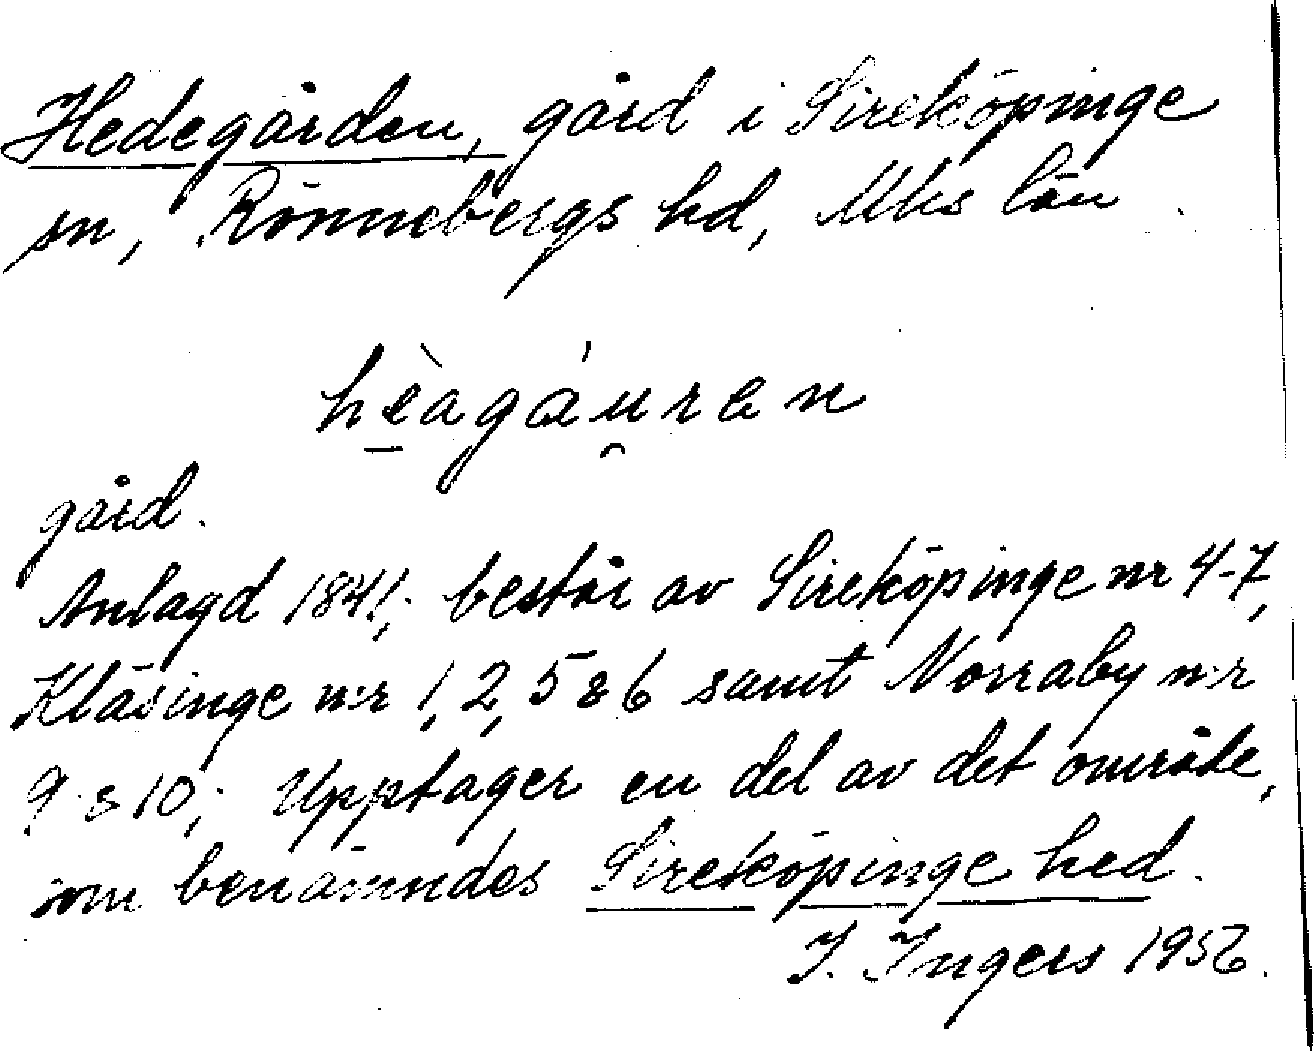 Hedegården, gård i Sireköpinge
sn, Rönnebergs hd, Mhs län.
hèagáuran
gård.
Anlagd 1841; består av Sireköpinge nr 4-7,
Klåsinge n:r 1, 2, 5 & 6 samt Norraby n:r
9 & 10; Upptager en del av det område,
som benämndes Sireköpinge hed.
I. Ingers 1956.